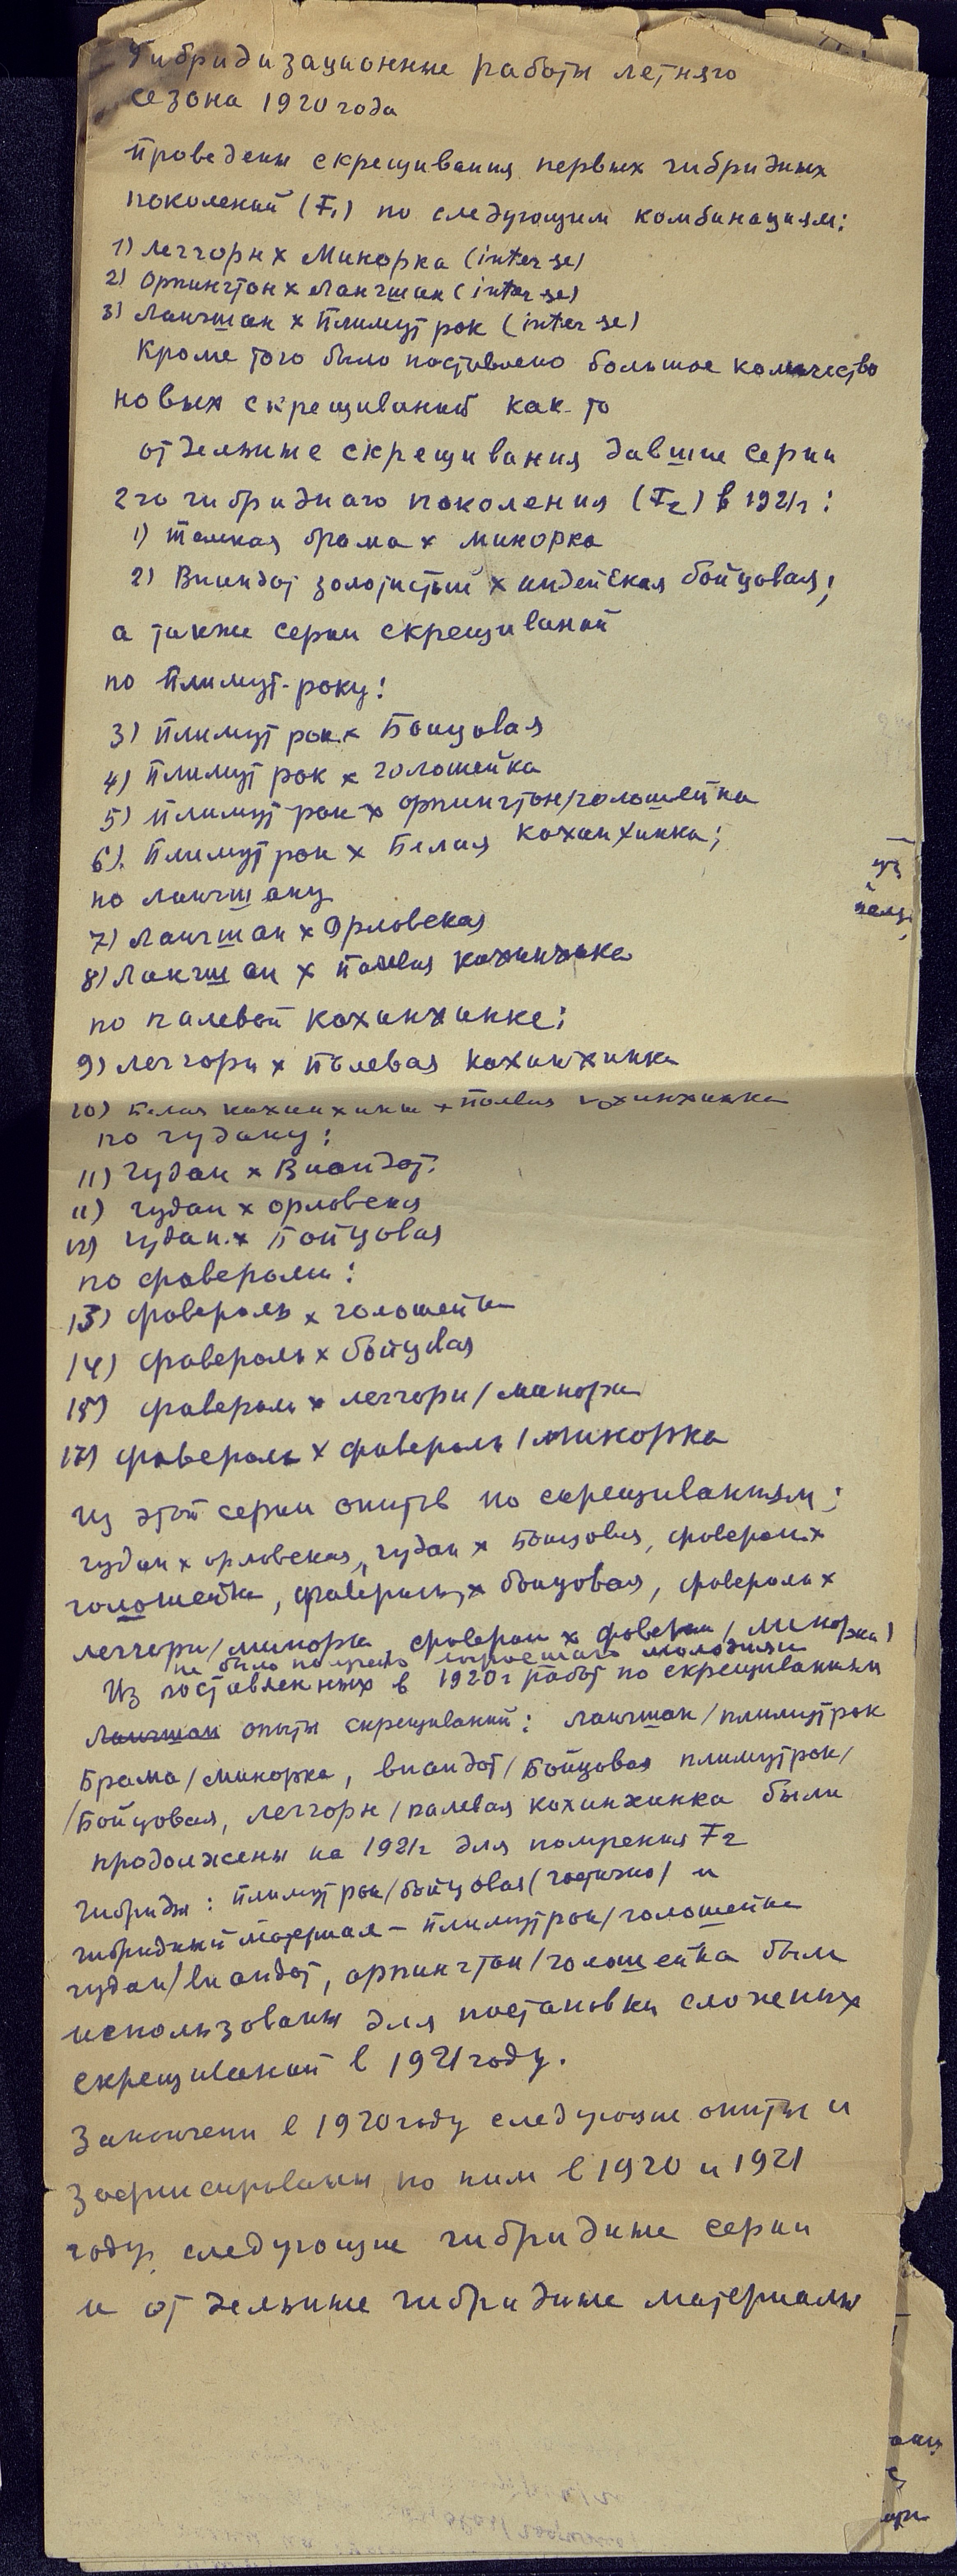 Гибридизационные работы летняго
сезона 1920 года
Проведены скрещивания первых гибридных
поколений (F₁) по следующим комбинациям:
1) Леггорн x Минорка (inter se)
2) Орпингтон x Лангшан (inter se)
3) Лангшан x Плимут рок (inter se)
Кроме того было поставлено большое количество
новых скрещиваний как-то
отдельные скрещивания давшие серии
2го гибриднаго поколения (F₂) в 1921г:
1) темная брама x минорка
2) Виандот золотистый x индейская бойцовая;
а также серии скрещиваний
по Плимут-року:
3) Плимут рок x Бойцовая
4) Плимут рок x голошейка
5) Плимут рок x орпингтон/голошейка
6) Плимут рок x Белая кохинхинка;
по лангшану
7) Лангшан x Орловская
8) Лангшан x Палевая кохинхинка
по палевой кохинхинке:
9) Леггорн x Палевая кохинхинка
10) Белая кохинхинка x Палевая кохинхинка
по гудану:
11) гудан x Виандот.
11) гудан x орловская
12) гудан x Бойцовая
по фаверолю:
13) фавероль x голошейка
14) фавероль x бойцовая
15) фавероль x леггорн/минорка
17) фавероль x фавероль/минорка
Из этой серии опытов по скрещиваниям:
гудан x орловская, гудан x Бойцовая, фавероль x
голошейка, фавероль x бойцовая, фавероль x
леггорн/минорка, фавероль x фавероль/минорка)
не было получено молодняка
Из поставленных в 1920г работ по скрещиваниям
Лангшан опыты скрещиваний: лангшан/плимутрок
Брама/минорка, виандот/Бойцовая плимутрок/
/Бойцовая, леггорн/палевая кохинхинка были
продолжены на 1921г для получения F₂
Гибриды: плимут рок/бойцовая (частично) и
гибридный материал – плимутрок/голошейка
гудан/виандот, орпингтон/голошейка были
использованы для постановки сложных
скрещиваний в 1921 году.
Закончены в 1920 году следующие опыты и
зафиксированы по ним в 1920 и 1921
году следующие гибридные серии
и отдельные гибридные материалы